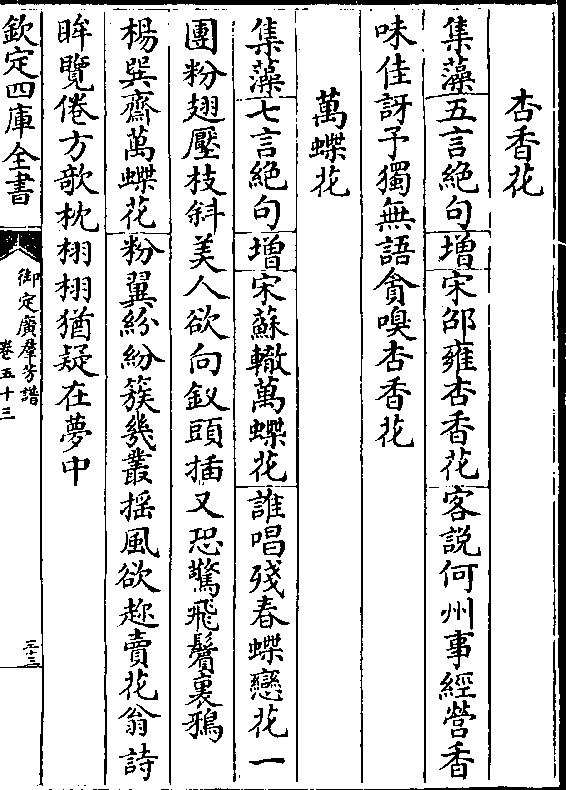 杏香花
集藻五言絶句增宋邵雍杏香花客説何州事經營香
味佳訝予獨無語貪嗅杏香花
萬蝶花
集藻七言絶句增宋蘇轍萬蝶花誰唱殘春蝶戀花一
團粉翅壓枝斜美人欲向釵頭插又恐驚飛鬢裏鴉
楊巽齋萬蝶花粉翼紛紛簇幾叢揺風欲趂賣花翁詩
眸覽倦方欹枕栩栩猶疑在夢中
欽定四庫全書
御定廣羣芳譜
卷五十三
二十三